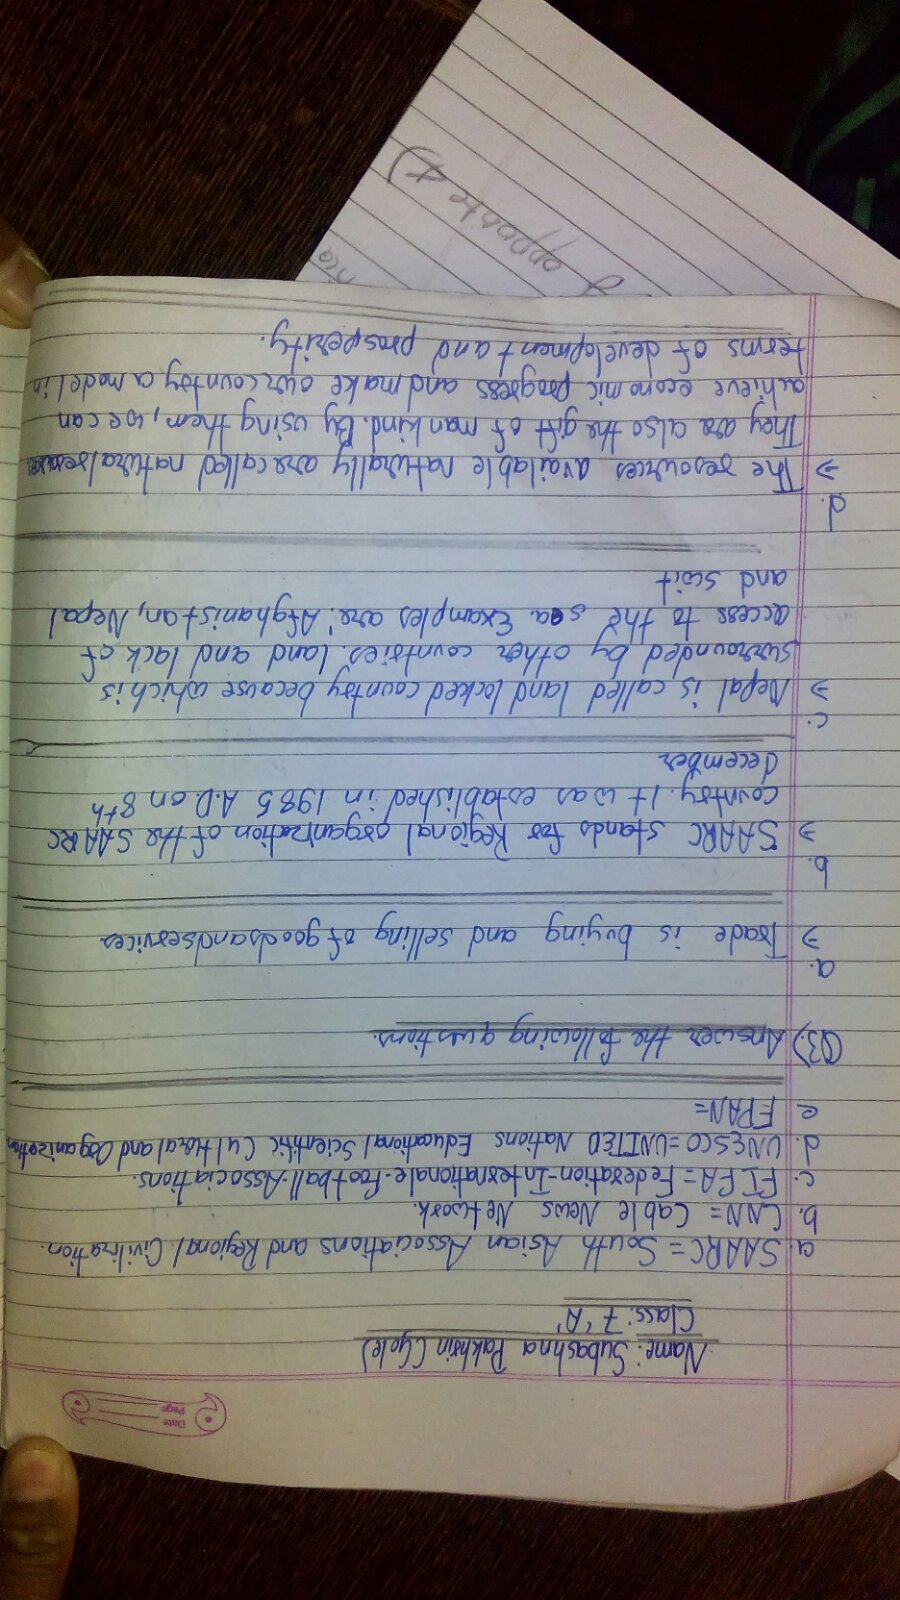 Date
Page
Name: Subashna Pakhrin (Gole)
Class: 7 'A'
a. SAARC = South Asian Associations and Regional Civilization.
b. CNN = Cable News Network.
c. FIFA = Federation-Internationale-Football-Associations.
d. UNESCO = UNITED Nations Educational Scientific Cultural and Organization
e. FPAN=
Q3.) Answer the following questions.
a.
⇒ Trade is buying and selling of goods and services
b.
⇒ SAARC stands for Regional organization of the SAARC
country. It was established in 1985 A.D. on 8th
december
c.
⇒ Nepal is called land locked country because which is
surrounded by other countries. land and lack of
access to the sea. Examples are: Afghanistan, Nepal
and swit
d.
⇒ The resources available naturally are called natural resources
They are also the gift of mankind. By using them, we can
achieve economic progress and make our country a model in
terms of development and prosperity.
opposite